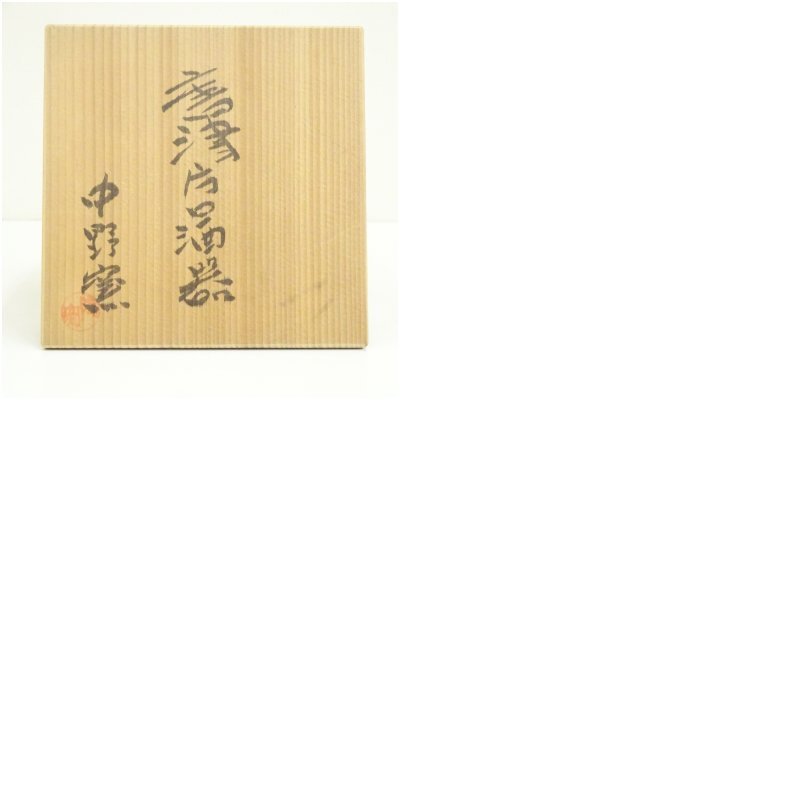 唐津片口酒器
中野窯